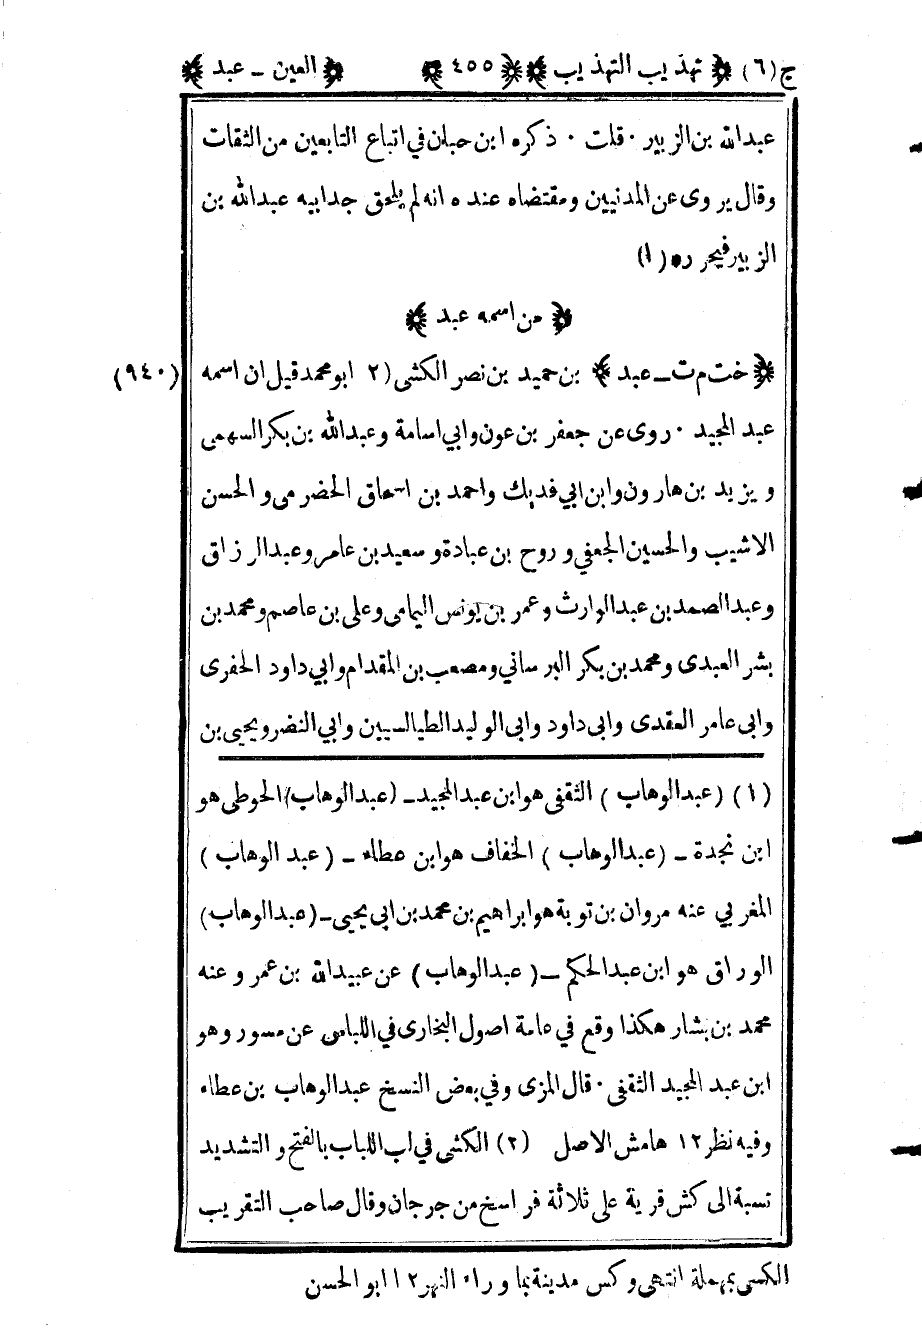 ج (٦) ﴿ تهذيب التهذيب ﴾ ﴿ ٤٥٥ ﴾ ﴿ العين ـ عبد ﴾
عبدالله بن الزبير · قلت · ذكره ابن حبان في اتباع التابعين من الثقات
وقال يروى عن المدنيين ومقتضاه عنده انه لم يلحق جد ابيه عبدالله بن
الزبير فيحرره (١)
﴿ من اسمه عبد ﴾
﴿ خت م ت ـ عبد ﴾ بن حميد بن نصر الكشى (٢ ابو محمد قيل ان اسمه (٩٤٠)
عبد المجيد · روى عن جعفر بن عون وابي اسامة وعبدالله بن بكر السهمى
ويزيد بن هارون وابن ابي فديك واحمد بن اسحاق الحضرمى والحسن
الاشيب والحسين الجعفي وروح بن عبادة وسعيد بن عامر وعبدالرزاق
وعبدالصمد بن عبدالوارث وعمر بن يونس اليمامى وعلى بن عاصم ومحمد بن
بشر العبدى ومحمد بن بكر البرساني ومصعب بن المقدام وابي داود الحفرى
وابى عامر العقدى وابى داود وابى الوليد الطيالسيين وابي النضر ويحيى بن
(١) (عبدالوهاب) الثقفى هو ابن عبدالمجيد ـ (عبدالوهاب) الحوطى هو
ابن نجدة ـ (عبدالوهاب) الخفاف هو ابن عطاء ـ (عبد الوهاب)
المغربي عنه مروان بن توبة هو ابراهيم بن محمد بن ابي يحيى ـ (عبدالوهاب)
الوراق هو ابن عبدالحكم ـ (عبدالوهاب) عن عبيدالله بن عمر وعنه
محمد بن بشار هكذا وقع في عامة اصول البخارى في اللباس عن مسور وهو
ابن عبد المجيد الثقفى · قال المزى وفي بعض النسخ عبدالوهاب بن عطاء
وفيه نظر ١٢ هامش الاصل (٢) الكشى في لب اللباب بالفتح والتشديد
نسبة الى كش قرية على ثلاثة فراسخ من جرجان وقال صاحب التقريب
الكسى بمهملة انتهى وكس مدينة بما وراء النهر ١٢ ابو الحسن